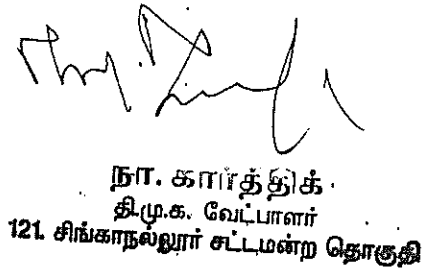 நா. கார்த்திக்
தி.மு.க. வேட்பாளர்
121. சிங்காநல்லூர் சட்டமன்ற தொகுதி